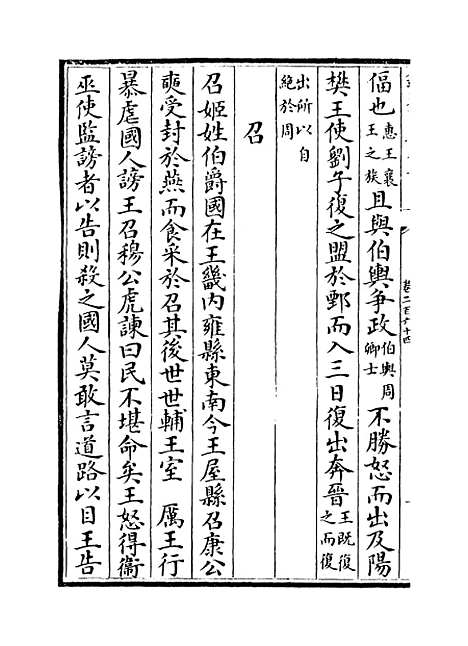 偪也惠王襄王之族且與伯輿争政伯輿周卿士不勝怒而出及陽
樊王使劉子復之盟於鄄而入三日復出奔晉王既復之而復
出所以自絶於周
召
召姬姓伯爵國在王畿内雍縣東南今王屋縣召康公
奭受封於燕而食采於召其後世世輔王室　厲王行
暴虐國人謗王召穆公虎諫曰民不堪命矣王怒得衞
巫使監謗者以告則殺之國人莫敢言道路以目王告